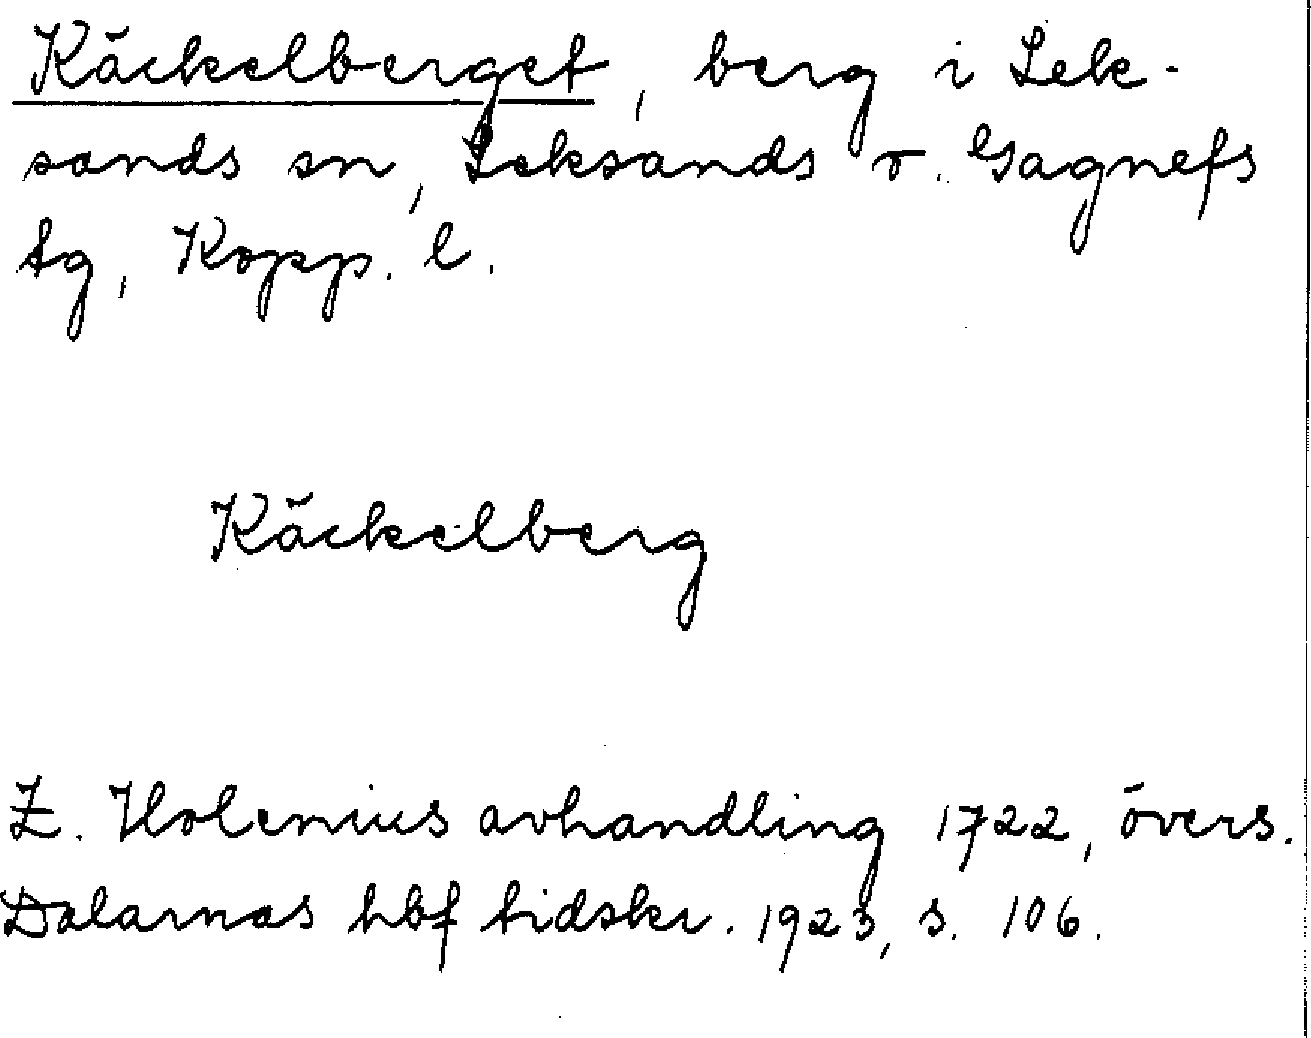 Käckelberget, berg i Lek-
sands sn, Leksands o. Gagnefs
tg, Kopp. l.
Käckelberg
Z. Holenius avhandling 1722, övers.
Dalarnas hbf tidskr. 1923, s. 106.